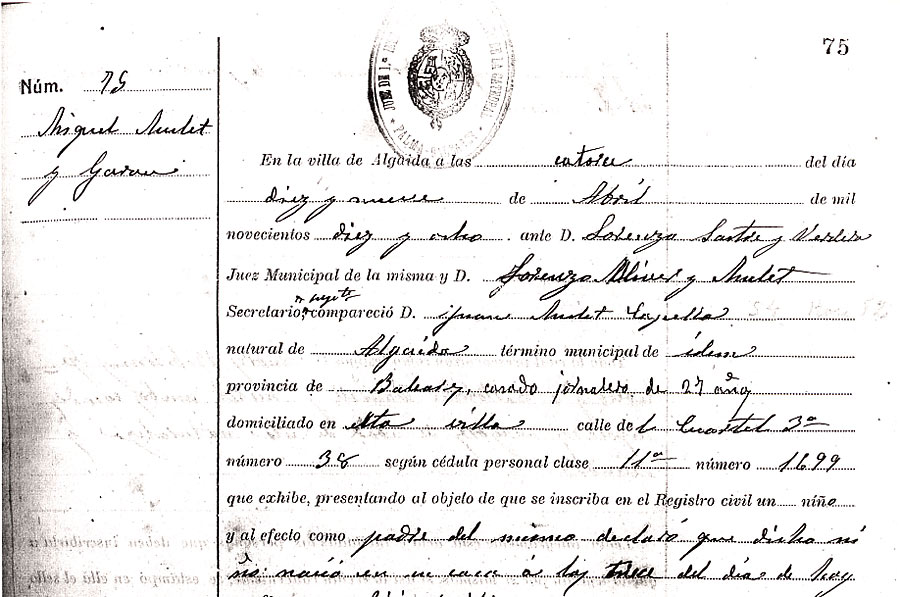 75
Núm. 75
Miguel Mulet
y Garau
JUZ. DE 1.ª
DE LA CATEDRAL
PALMA
En la villa de Algaida a las catorce del día
diez y nueve de Abril de mil
novecientos diez y ocho . ante D. Lorenzo Sastre y Verdera
Juez Municipal de la misma y D. Lorenzo Oliver y Mulet
Secretario, compareció D. Juan Mulet Capella
natural de Algaida término municipal de idem
provincia de Baleares, casado jornalero de 27 años
domiciliado en esta villa calle del Cuartel 3º
número 38 según cédula personal clase 11ª número 1699
que exhibe, presentando al objeto de que se inscriba en el Registro civil un niño
y al efecto como padre del mismo declaró que dicho ni
ño nació en su casa á las trece del día de hoy